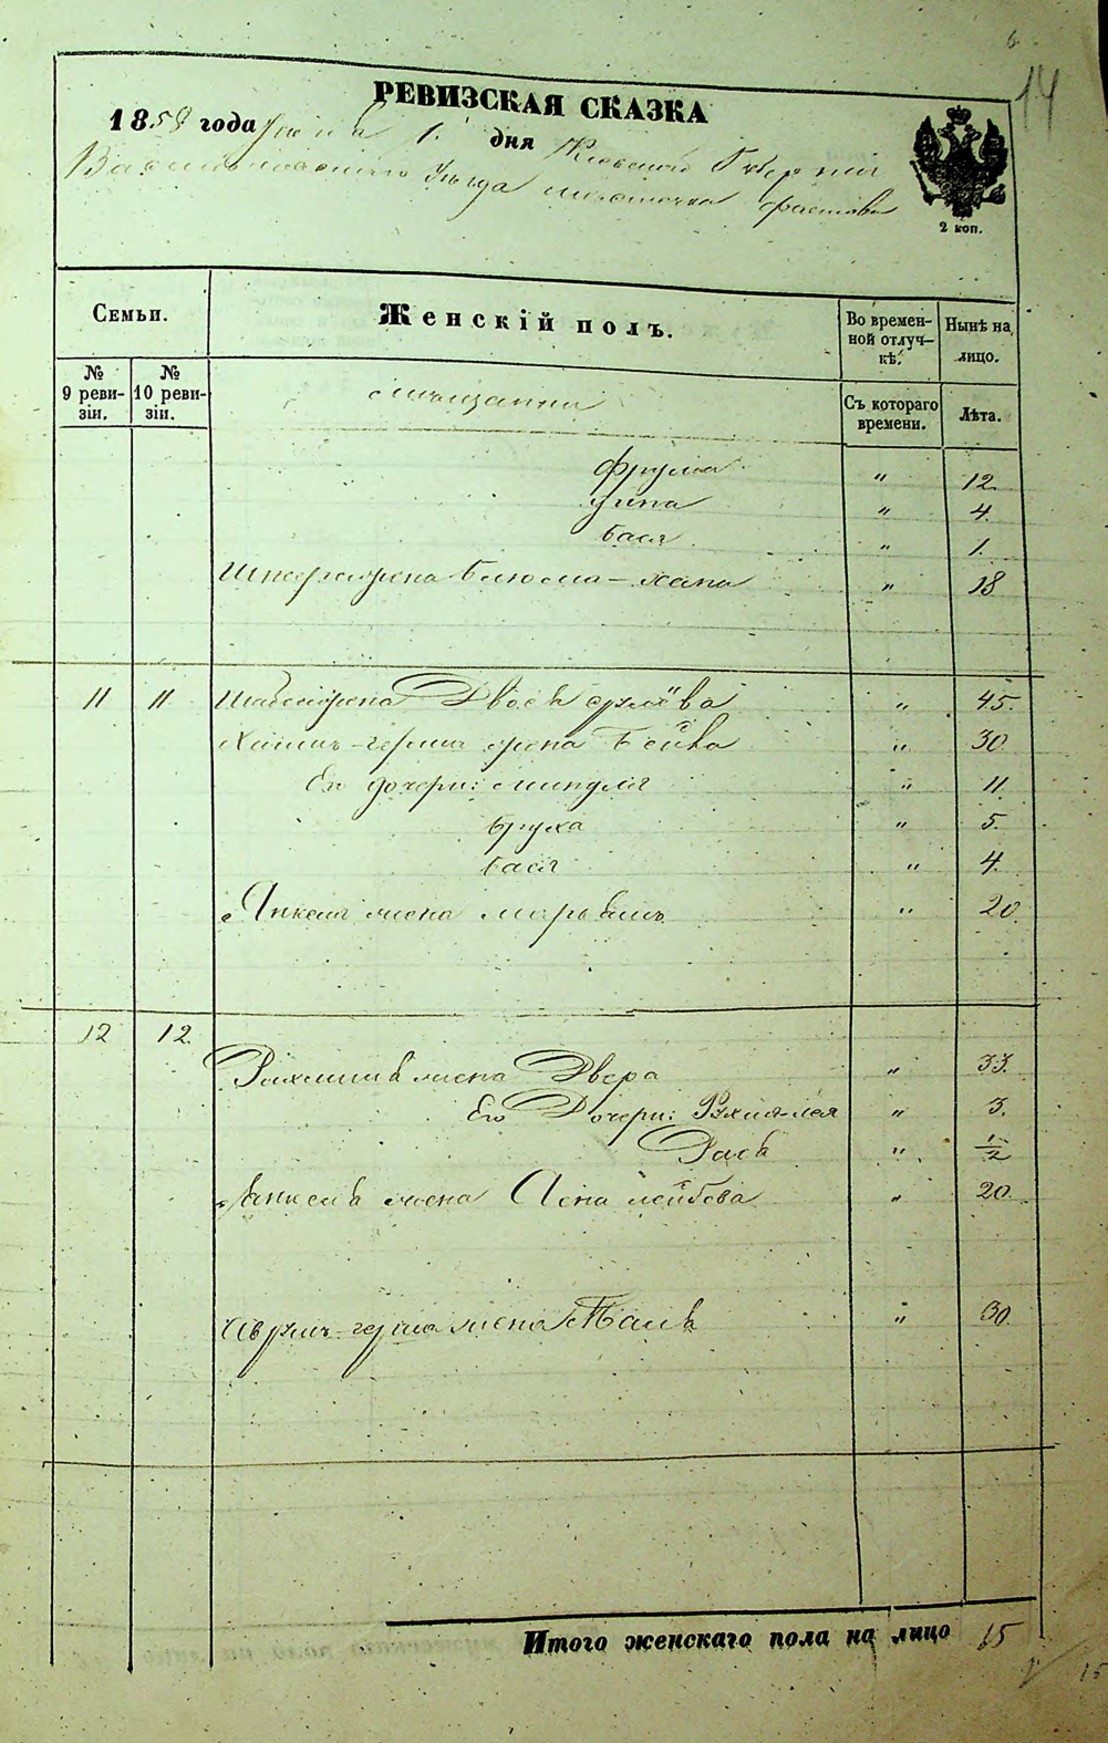 6
14
РЕВИЗСКАЯ СКАЗКА
1858 года Іюня 1. дня Кіевской Губерніи
Васильковскаго Уѣзда мѣстечка Фастова
2 коп.
Семьи.
Женскій полъ.
Во времен-
ной отлуч-
кѣ.
Нынѣ на
лицо.
№
9 реви-
зіи.
№
10 реви-
зіи.
Мѣщанки
Съ котораго
времени.
Лѣта.
Фрума " 12.
" 4.
Бася " 1.
Блюма-Хана " 18
11 11 Двося " 45.
жена Бейла " 30
Его дочери: Миндля " 11.
Бруха " 5.
Бася " 4.
Янкеля жена Марьямъ " 20.
12 12.
жена Двера " 33.
Его Дочери: " 3.
" 1/2
Янкеля жена Лейбова " 20.
Аврумъ-Герша жена " 30.
Итого женскаго пола на лицо 15
15